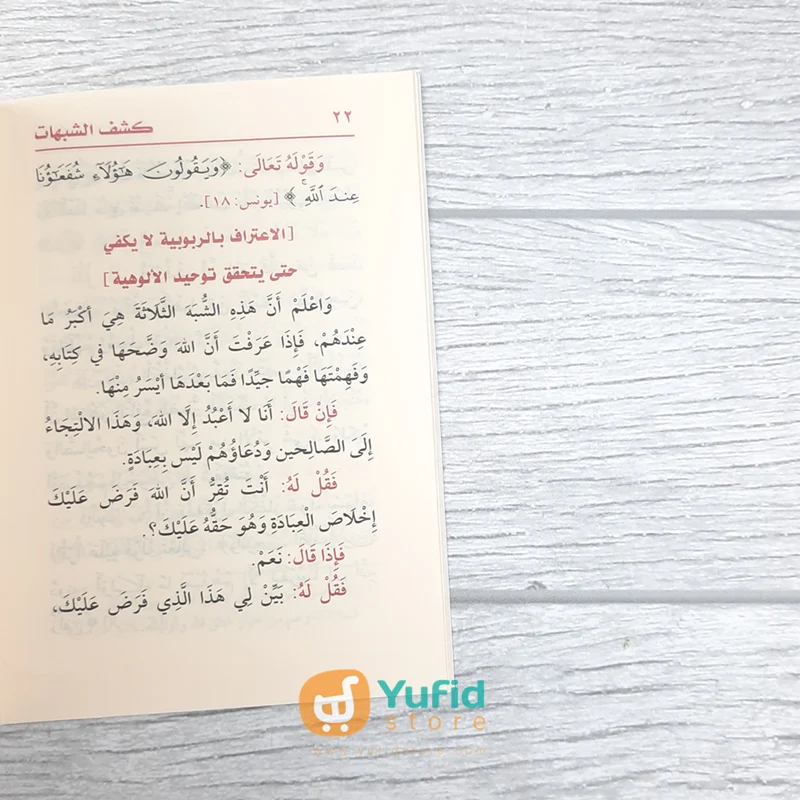 ٢٢ كشف الشبهات
وَقَوْلَهُ تَعَالَى: ﴿وَيَقُولُونَ هَٰٓؤُلَآءِ شُفَعَٰٓؤُنَا
عِندَ ٱللَّهِۚ﴾ [يونس: ١٨].
[الاعتراف بالربوبية لا يكفي
حتى يتحقق توحيد الألوهية]
وَاعْلَمْ أَنَّ هَذِهِ الشُّبَهَ الثَّلَاثَةَ هِيَ أَكْبَرُ مَا
عِنْدَهُمْ، فَإِذَا عَرَفْتَ أَنَّ اللهَ وَضَّحَهَا فِي كِتَابِهِ،
وَفَهِمْتَهَا فَهْمًا جيِّدًا فَمَا بَعْدَهَا أَيْسَرُ مِنْهَا.
فَإِنْ قَالَ: أَنَا لا أَعْبُدُ إِلَّا اللهَ، وَهَذَا الالْتِجَاءُ
إِلَى الصَّالِحين وَدُعَاؤُهُمْ لَيْسَ بِعِبَادَةٍ.
فَقُلْ لَهُ: أَنْتَ تُقِرُّ أَنَّ اللهَ فَرَضَ عَلَيْكَ
إِخْلَاصَ الْعِبَادَةِ وَهُوَ حَقُّهُ عَلَيْكَ؟.
فَإِذَا قَالَ: نَعَمْ.
فَقُلْ لَهُ: بَيِّنْ لِي هَذَا الَّذِي فَرَضَ عَلَيْكَ،
Yufid
store